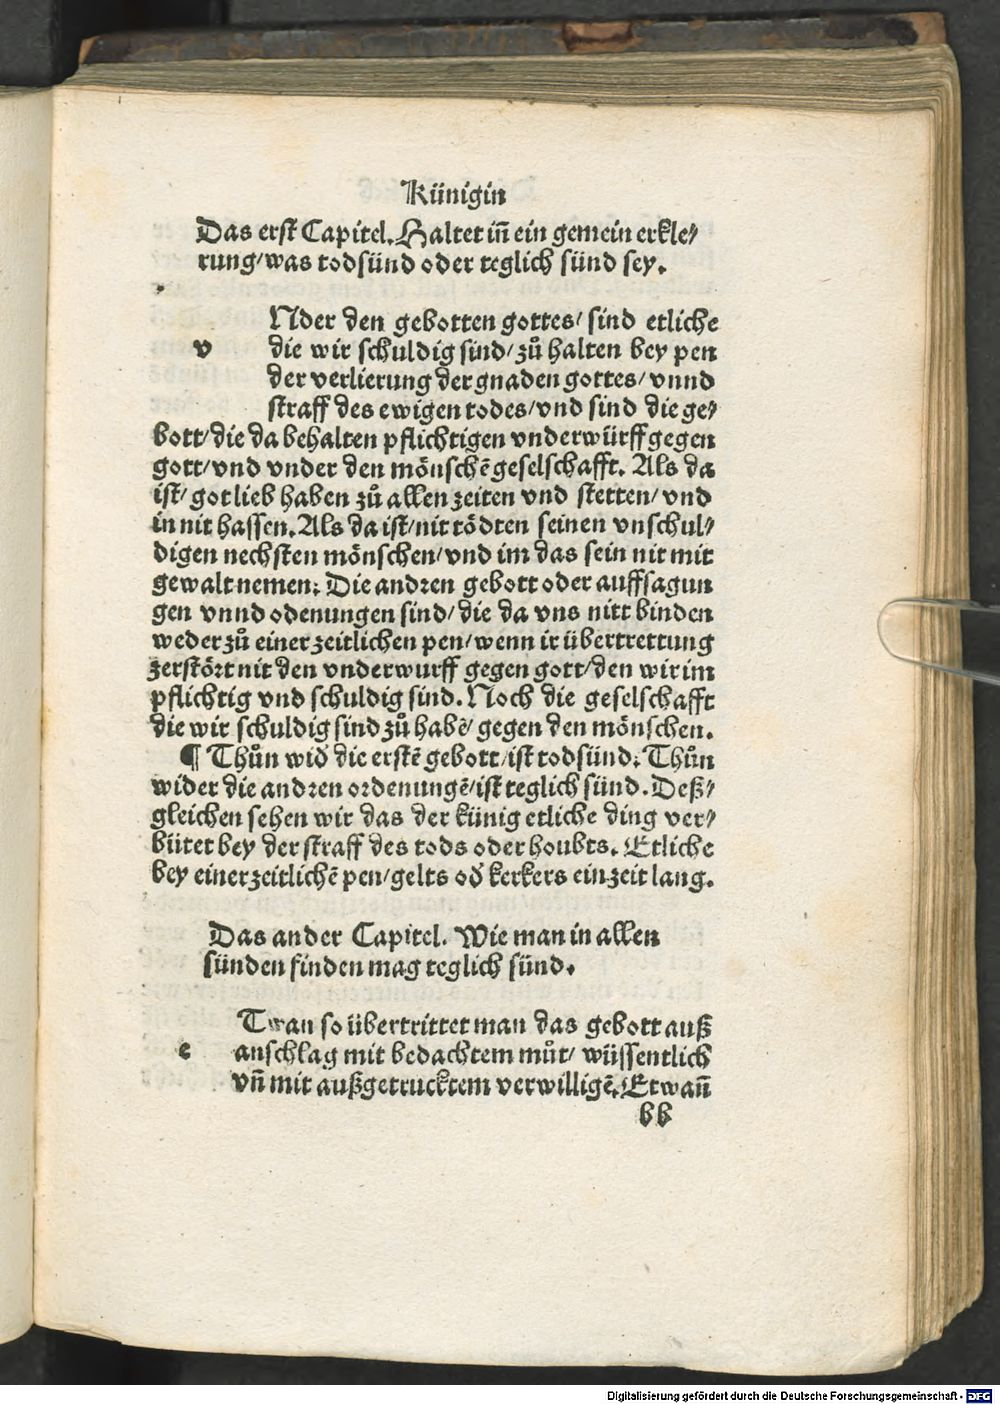 Künigin
Das erst Capitel. Haltet iñ ein gemein erkle⸗
rung/was todsünd oder teglich sünd sey.
v
Nder den gebotten gottes/ sind etliche
die wir schuldig sind/zů halten bey pen
der verlierung der gnaden gottes/vnnd
straff des ewigen todes/vnd sind die ge⸗
bott/die da behalten pflichtigen vnderwürff gegen
gott/vnd vnder den mönschẽ geselschafft. Als da
ist/ got lieb haben zů allen zeiten vnd stetten/vnd
in nit hassen. Als da ist/nit tödten seinen vnschul⸗
digen nechsten mönschen/vnd im das sein nit mit
gewalt nemen: Die andren gebott oder auffsagun
gen vnnd odenungen sind/die da vns nitt binden
weder zů einer zeitlichen pen/wenn ir übertrettung
zerstört nit den vnderwurff gegen gott/den wir im
pflichtig vnd schuldig sind. Noch die geselschafft
die wir schuldig sind zů habẽ/ gegen den mönschen.
¶ Thůn wid̕ die erstẽ gebott/ist todsünd: Thůn
wider die andren ordenungẽ/ist teglich sünd. Deß⸗
gleichen sehen wir das der künig etliche ding ver⸗
bütet bey der straff des tods oder houbts. Etliche
bey einer zeitlichẽ pen/gelts od̕ kerkers ein zeit lang.
Das ander Capitel. Wie man in allen
sünden finden mag teglich sünd.
e
Twan so übertrittet man das gebott auß
anschlag mit bedachtem můt/ wüssentlich
vñ mit außgetrucktem verwilligẽ. Etwañ
bb
Digitalisierung gefördert durch die Deutsche Forschungsgemeinschaft - DFG